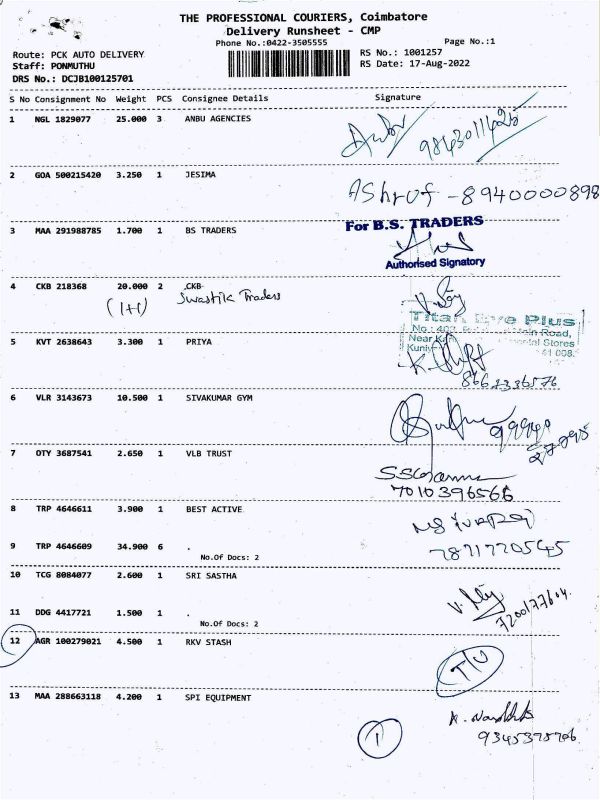 THE PROFESSIONAL COURIERS, Coimbatore
Delivery Runsheet - CMP
Phone No.:0422-3505555 Page No.:1
Route: PCK AUTO DELIVERY RS No.: 1001257
Staff: PONMUTHU RS Date: 17-Aug-2022
DRS No.: DCJB100125701
S No Consignment No Weight PCS Consignee Details Signature
1 NGL 1829077 25.000 3 ANBU AGENCIES
9843011425
2 GOA 500215420 3.250 1 JESIMA
AShrof - 8940000898
3 MAA 291988785 1.700 1 BS TRADERS For B.S. TRADERS
Authorised Signatory
4 CKB 218368 20.000 2 .CKB-
(1+1) Swastik Traders
Titan Eye Plus
Main Road,
Near
Stores
5 KVT 2638643 3.300 1 PRIYA
41 008.
6 VLR 3143673 10.500 1 SIVAKUMAR GYM
7 OTY 3687541 2.650 1 VLB TRUST
7010396566
8 TRP 4646611 3.900 1 BEST ACTIVE
9 TRP 4646609 34.900 6 .
No.Of Docs: 2
7871770545
10 TCG 8084077 2.600 1 SRI SASTHA
11 DDG 4417721 1.500 1 .
No.Of Docs: 2
7200177604
12 AGR 100279021 4.500 1 RKV STASH
T/U
13 MAA 288663118 4.200 1 SPI EQUIPMENT
1